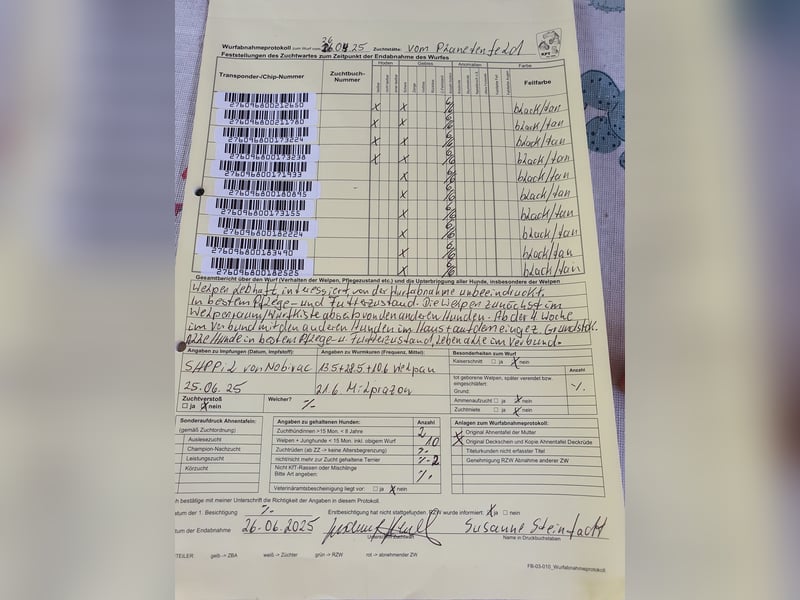 Wurfabnahmeprotokoll zum Wurf vom 26.04.25 Zuchtstätte: vom Planetenfeld
Feststellungen des Zuchtwartes zum Zeitpunkt der Endabnahme des Wurfes
Hoden Gebiss Anomalien Farbe
Transponder-/Chip-Nummer Zuchtbuch-Nummer Fellfarbe
276096800212650 X X 6/6 black/tan
276096800211780 X X 6/6 black/tan
276096800173224 X X 6/6 black/tan
276096800173238 X X 6/6 black/tan
276096800171933 X 6/6 black/tan
276096800180895 X 6/6 black/tan
276096800173155 X 6/6 black/tan
276096800182224 X 6/6 black/tan
276096800183490 X 6/6 black/tan
276096800182525 X 6/6 black/tan
Gesamtbericht über den Wurf (Verhalten der Welpen, Pflegezustand etc.) und die Unterbringung aller Hunde, insbesondere der Welpen
Welpen lebhaft, interessiert, von der Wurfabnahme unbeeindruckt.
In bestem Pflege- und Futterzustand. Die Welpen zunächst im
Welpenraum/Wurfkiste abseits von den anderen Hunden. Ab der 4 Woche
im Verbund mit den anderen Hunden im Haus + auf dem eingez. Grundstck.
Alle Hunde in bestem Pflege- u. Futterzustand, leben alle im Verbund.
Angaben zu Impfungen (Datum, Impfstoff): Angaben zu Wurmkuren (Frequenz, Mittel): Besonderheiten zum Wurf
SHPPi2 von Nobivac 13.5+28.5+10.6 Welpan
Kaiserschnitt ja X nein
Anzahl
tot geborene Welpen, später verendet bzw. eingeschläfert: %.
Grund:
25.06.25 21.6. Milprazon
Ammenaufzucht ja X nein
Zuchtverstoß Welcher?
ja X nein %
Zuchtmiete ja X nein
Sonderaufdruck Ahnentafeln: Angaben zu gehaltenen Hunden: Anzahl Anlagen zum Wurfabnahmeprotokoll:
(gemäß Zuchtordnung) Zuchthündinnen >15 Mon. < 8 Jahre 2 Original Ahnentafel der Mutter
Auslesezucht Welpen + Junghunde < 15 Mon. inkl. obigem Wurf 10 X Original Deckschein und Kopie Ahnentafel Deckrüde
Champion-Nachzucht Zuchtrüden (ab ZZ -> keine Altersbegrenzung) %- Titelurkunden nicht erfasster Titel
Leistungszucht nicht/nicht mehr zur Zucht gehaltene Terrier 2 Genehmigung RZW Abnahme anderer ZW
Körzucht Nicht KfT-Rassen oder Mischlinge %.
Bitte Art angeben:
Veterinäramtsbescheinigung liegt vor: ja X nein
h bestätige mit meiner Unterschrift die Richtigkeit der Angaben in diesem Protokoll.
atum der 1. Besichtigung %- Erstbesichtigung hat nicht stattgefunden, RZW wurde informiert: X ja nein
tum der Endabnahme 26.06.2025 Susanne Steinfadt
Unterschrift Zuchtwart Name in Druckbuchstaben
TEILER: gelb -> ZBA weiß -> Züchter grün -> RZW rot -> abnehmender ZW
FB-03-010_Wurfabnahmeprotokoll